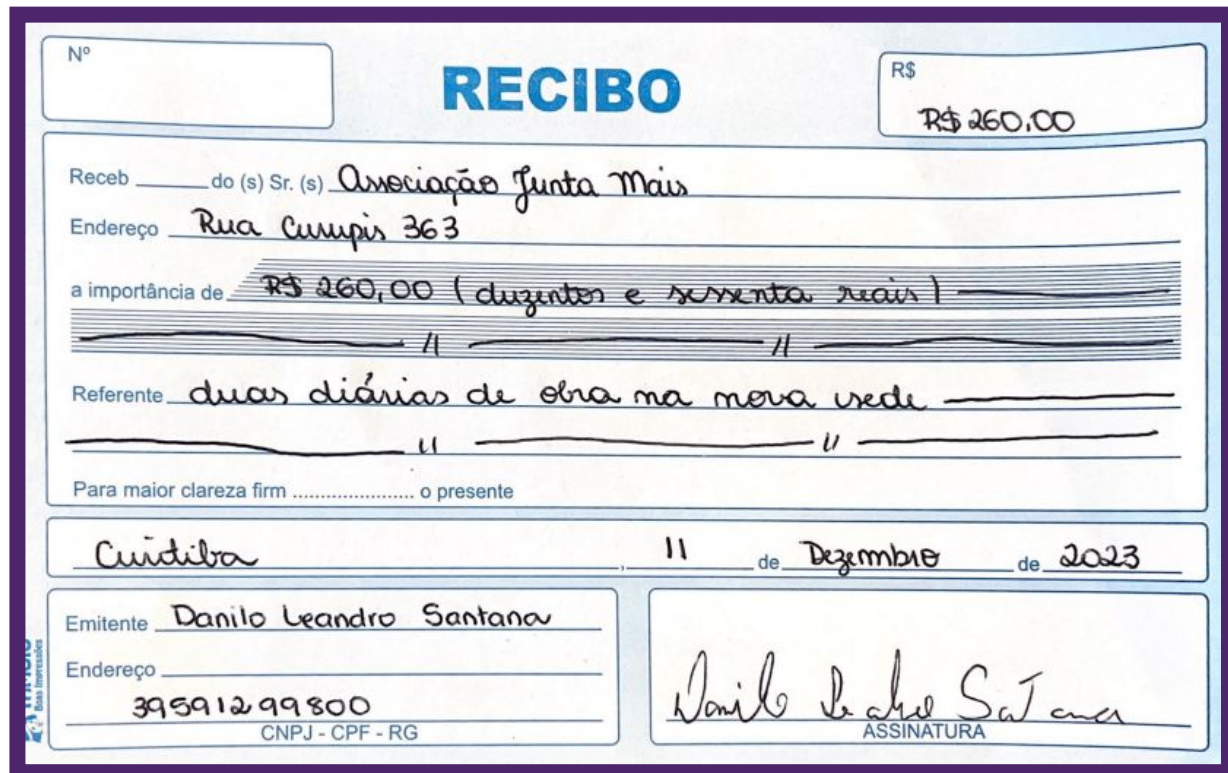 Nº
RECIBO
R$
R$ 260,00
Receb do (s) Sr. (s) Associação Junta Mais
Endereço Rua Curupis 363
a importância de R$ 260,00 (duzentos e sessenta reais)
// //
Referente duas diárias de obra na nova sede
// //
Para maior clareza firm ...................... o presente
Curitiba, 11 de Dezembro de 2023
Emitente Danilo Leandro Santana
Endereço
39591299800
CNPJ - CPF - RG
ASSINATURA
Boas Impressões